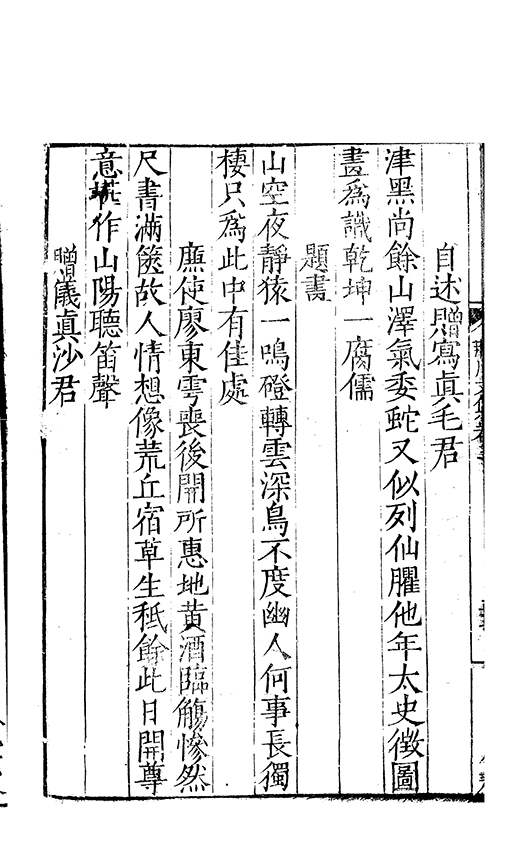 自述贈寫真毛君
津黑尚餘山澤氣委蛇又似列仙臞他年太史徵圖
畫爲識乾坤一腐儒
題畫
山空夜靜猿一鳴磴轉雲深鳥不度幽人何事長獨
棲只爲此中有佳處
廉使廖東雩喪後開所惠地黄酒臨觴慘然
尺書滿篋故人情想像荒丘宿草生秖餘此日開尊
意堪作山陽聽笛聲
贈儀真沙君